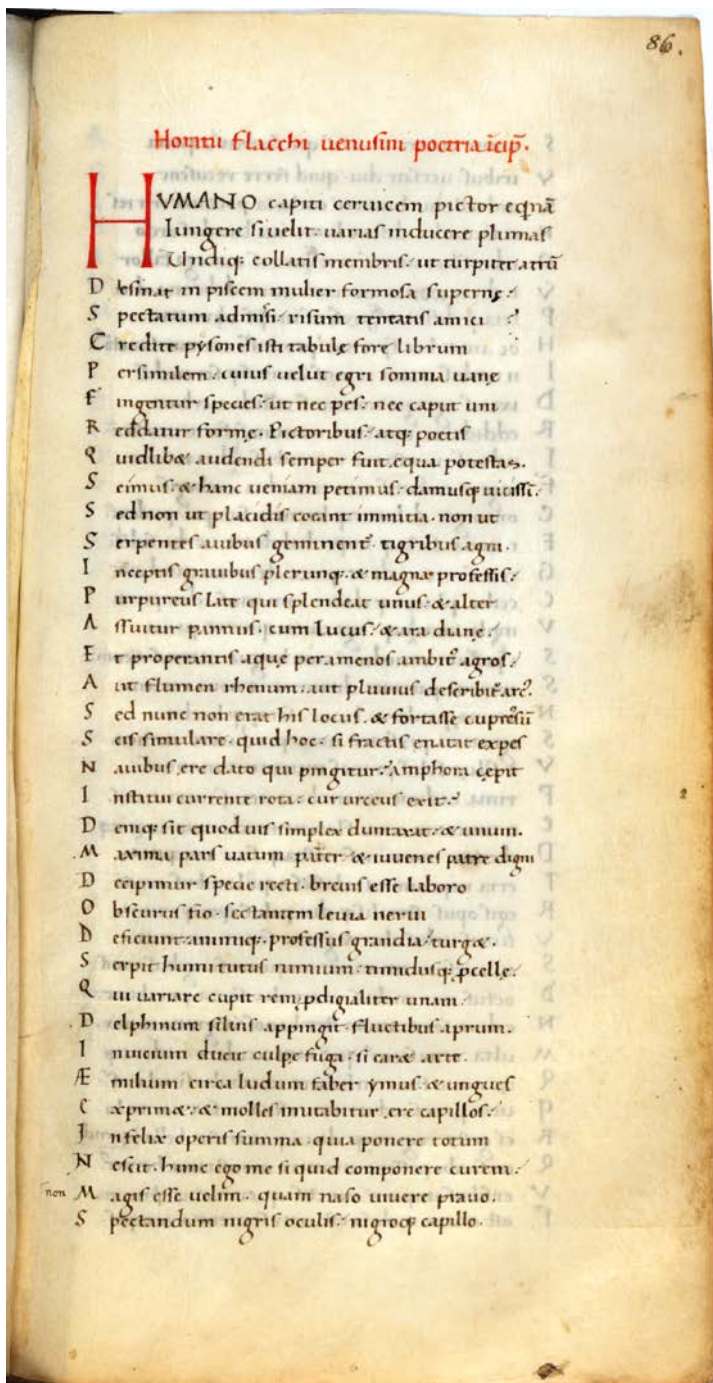 86.
Horatii flacchi uenusini poetria īcip̄.
HVMANO capiti ceruicem pictor equnā
Iungere si uelit. uarias inducere plumas
Vndiq; collatis membris. ut turpiter atrū
Desinat in piscem mulier formosa supernę.
Spectatum admisi risum teneatis amici?
Credite pysones isti tabulę fore librum
Persimilem. cuius uelut egri somnia uane
Fingentur species. ut nec pes. nec caput uni
Reddatur forme. Pictoribus. atq; poetis
Quidlib& audendi semper fuit equa potestas.
Scimus. & hanc ueniam petimus. damusq; uicissī.
Sed non ut placidis coeant immitia. non ut
Serpentes auibus geminent᷑. tigribus agni.
Inceptis grauibus plerunq;. & magna professis.
Purpureus late qui splendeat unus. & alter
Assuitur pannus. cum lucus. & ara diane.
Et properantis aquę per amenos ambit᷑ agros.
Aut flumen rhenum. aut pluuius describit᷑ arc᷑.
Sed nunc non erat his locus. & fortasse cupressū
Scis simulare. quid hoc. si fractis enatat expes
Nauibus ere dato qui pingitur. amphora cepit
Institui currente rota. cur urceus exit.
Deniq; sit quod uis simplex duntaxat. & unum.
Maxima pars uatum pater & iuuenes patre digni
Decipimur specie recti. breuis esse laboro
Obscurus fio. sectantem leuia nerui
Deficiunt. animiq;. professus grandia. turg&.
Serpit humi tutus nimium. timidusq; p̲cellę.
Qui uariare cupit rem p̲digialiter unam.
Delphinum siluis appingit. fluctibus aprum.
In uicium ducit culpę fuga. si car& arte.
Æmilium circa ludum faber ymus. & ungues
Exprim&. & molles imitabitur ere capillos.
Infelix operis summa. quia ponere totum
Nescit. hunc ego me si quid componere curem.
non Magis esse uelim. quam naso uiuere prauo.
Spectandum nigris oculis. nigroq; capillo.